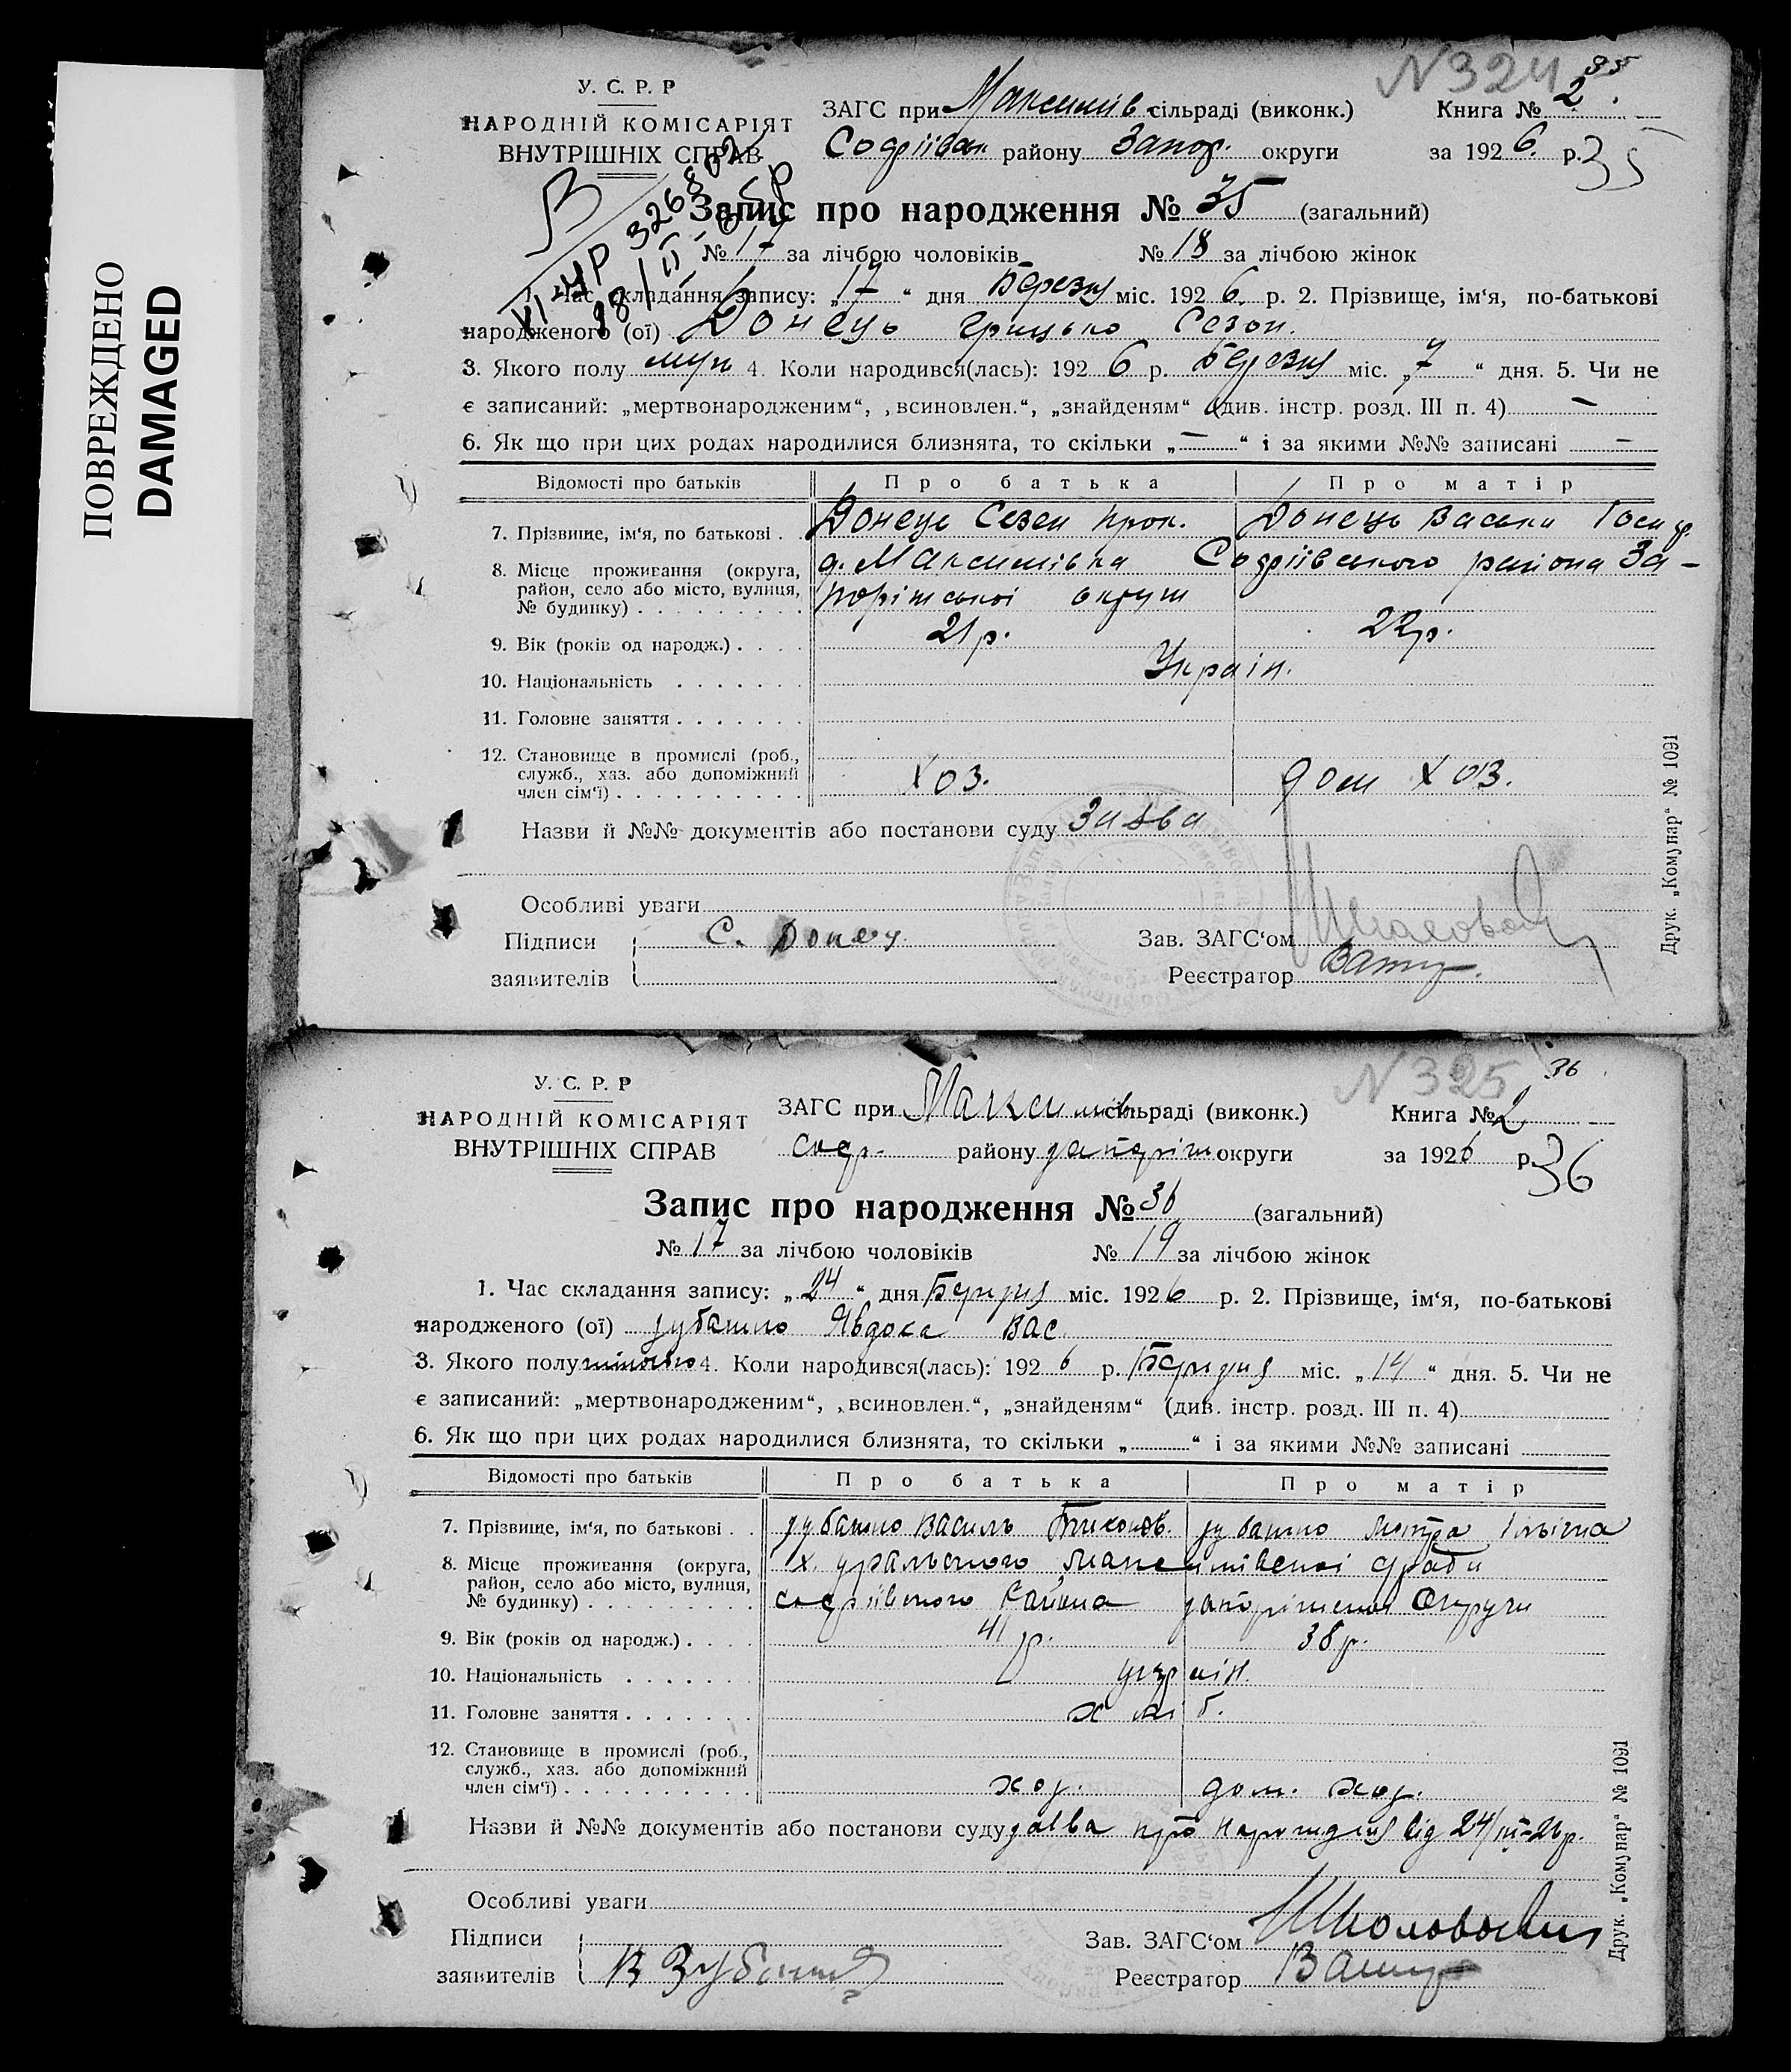 ПОВРЕЖДЕНО
DAMAGED
N 324 35
У. С. Р. Р
НАРОДНІЙ КОМІСАРІЯТ
ВНУТРІШНІХ СПРАВ
ЗАГС при Максимів сільраді (виконк.) Книга № 2
Софіївськ. району Запор. округи за 1926 р. 35
Запис про народження № 35 (загальний)
№ 17 за лічбою чоловіків № 18 за лічбою жінок
1. Час складання запису: „17“ дня Березня міс. 1926. р. 2. Прізвище, ім‘я, по-батькові
народженого (ої) Донець Грицько Сезон.
3. Якого полу муж 4. Коли народився(лась): 1926 р. Березня міс. „7“ дня. 5. Чи не
є записаний: „мертвонародженим“, „всиновлен.“, „знайденям“ (див. інстр. розд. III п. 4) —
6. Як що при цих родах народилися близнята, то скільки „—“ і за якими №№ записані —
Відомості про батьків Про батька Про матір
7. Прізвище, ім‘я, по батькові . Донець Сезон Прок. Донець Васьки
8. Місце проживання (округа, район, село або місто, вулиця, № будинку) . . . с. Максимівка Софіївського района За-
порішської округи
9. Вік (років од народж.) . . . . 21 р. 22 р.
10. Національність . . . . . . . Україн.
11. Головне заняття . . . . . . .
12. Становище в промислі (роб., служб., хаз. або допоміжний член сім‘ї) . . . хоз. дом хоз.
Назви й №№ документів або постанови суду Заява
Особливі уваги
Підписи С. Донец Зав. ЗАГС‘ом
заявителів Реєстратор
Друк. „Комунар“ № 1091
N 325 36
У. С. Р. Р
НАРОДНІЙ КОМІСАРІЯТ
ВНУТРІШНІХ СПРАВ
ЗАГС при Максимів сільраді (виконк.) Книга № 2
Соф. району Запоріш округи за 1926 р. 36
Запис про народження № 36 (загальний)
№ 17 за лічбою чоловіків № 19 за лічбою жінок
1. Час складання запису: „24“ дня Березня міс. 1926 р. 2. Прізвище, ім‘я, по-батькові
народженого (ої) Зубашко Явдоха Вас.
3. Якого полу жіночого 4. Коли народився(лась): 1926 р. Березня міс. „14“ дня. 5. Чи не
є записаний: „мертвонародженим“, „всиновлен.“, „знайденям“ (див. інстр. розд. III п. 4)
6. Як що при цих родах народилися близнята, то скільки „ “ і за якими №№ записані
Відомості про батьків Про батька Про матір
7. Прізвище, ім‘я, по батькові . . Зубашко Василь Тихонов. Зубашко Мотра
8. Місце проживання (округа, район, село або місто, вулиця, № будинку) . . . х. Уральського Максимівської с/ради
Софіївського Района Запорішської Округи
9. Вік (років од народж.) . . . . 41 р. 38 р.
10. Національність . . . . . . . україн.
11. Головне заняття . . . . . . . хліб.
12. Становище в промислі (роб., служб., хаз. або допоміжний член сім‘ї) . . . хоз. дом. хоз.
Назви й №№ документів або постанови суду заява про народженя від 24/III-26 р.
Особливі уваги
Підписи Зав. ЗАГС‘ом
заявителів В Зубашко Реєстратор
Друк. „Комунар“ № 1091